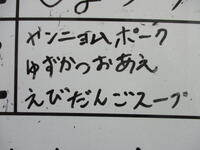 ヤンニョムポーク
ゆずかつおあえ
えびだんごスープ